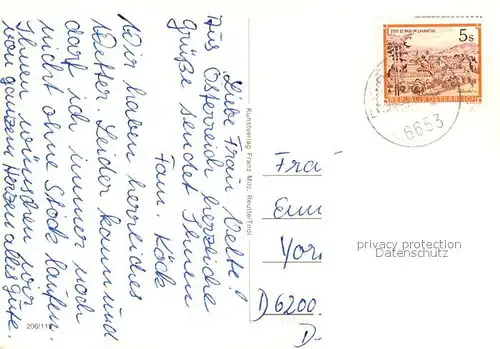 Liebe Frau Nette!
Aus Österreich herzliche
Grüße sendet Ihnen
Fam. Köck
Wir haben herrliches
Wetter. Leider kann und
darf ich immer noch
nicht ohne Stock laufen.
Ihnen wünschen wir
von ganzem Herzen alles Gute.
206/11
Kunstverlag Franz Milz, Reutte/Tirol
STIFT ST. PAUL IM LAVANTTAL
5 s
REPUBLIK ÖSTERREICH
6653
Frau
Yor
D 6200
D-
privacy protection
Datenschutz